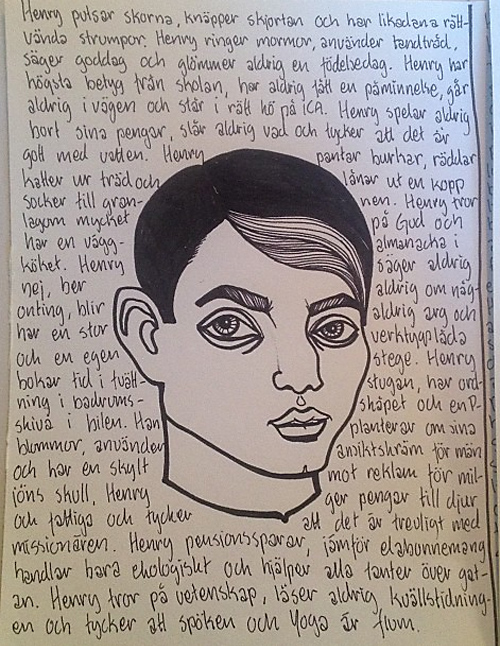 Henry putsar skorna, knäpper skjortan och har likadana rätt-
vända strumpor. Henry ringer mormor, använder tandtråd,
säger goddag och glömmer aldrig en födelsedag. Henry har
högsta betyg från skolan, har aldrig fått en påminnelse, går
aldrig i vägen och står i rätt kö på ICA. Henry spelar aldrig
bort sina pengar, slår aldrig vad och tycker att det är
gott med vatten. Henry pantar burkar, räddar
katter ur träd och lånar ut en kopp
socker till gran- nen. Henry tror
lagom mycket på Gud och
har en vägg- almanacka i
köket. Henry säger aldrig
nej, ber aldrig om någ-
onting, blir aldrig arg och
har en stor verktygslåda
och en egen stege. Henry
bokar tid i tvätt- stugan, har ord-
ning i badrums- skåpet och en P-
skiva i bilen. Han planterar om sina
blommor, använder ansiktskräm för män
och har en skylt mot reklam för mil-
jöns skull. Henry ger pengar till djur
och fattiga och tycker att det är trevligt med
missionären. Henry pensionssparar, jämför elabonnemang
handlar bara ekologiskt och hjälper alla tanter över gat-
an. Henry tror på vetenskap, läser aldrig kvällstidning-
en och tycker att spöken och Yoga är flum.